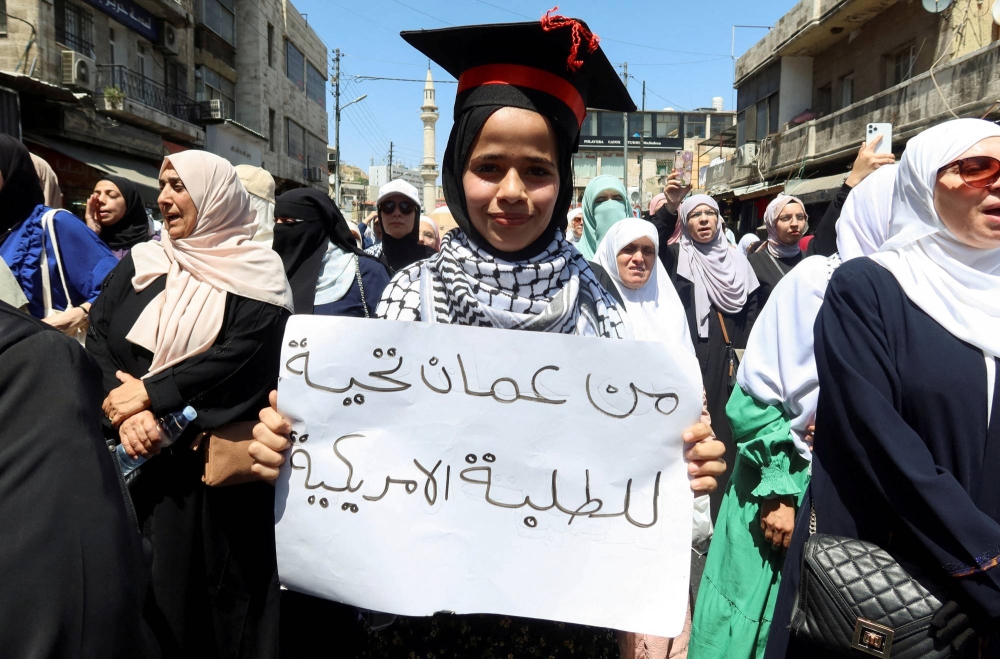 من عمان تحية
للطلبة الامريكية